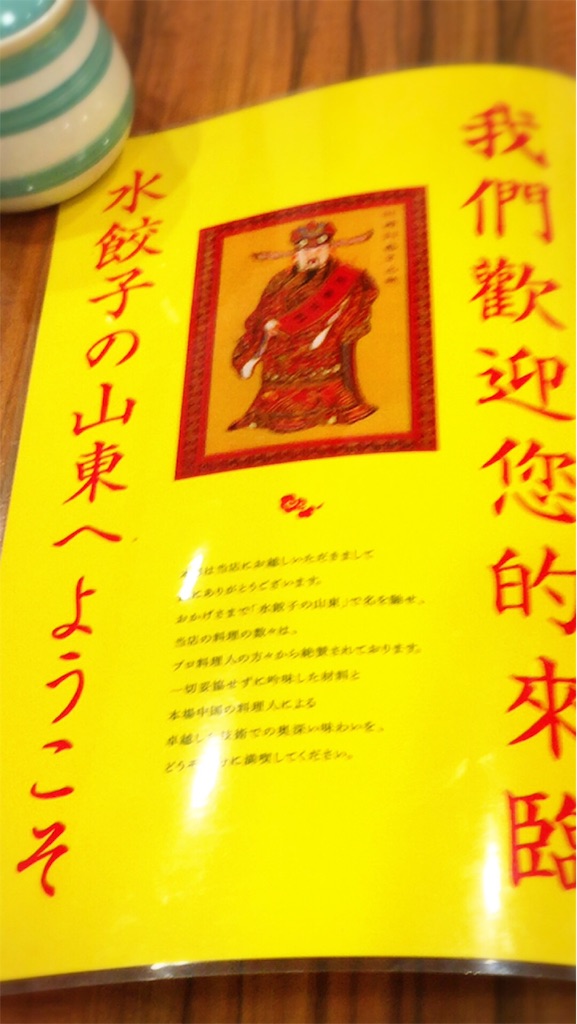 我們歡迎您的來臨
水餃子の山東へようこそ
は当店にお越しいただきまして
にありがとうございます。
おかげさまで「水餃子の山東」で名を馳せ、
当店の料理の数々は、
プロ料理人の方々から絶賛されております。
一切妥協せずに吟味した材料と
本場中国の料理人による
卓越した技術での奥深い味わいを、
どう に満喫してください。